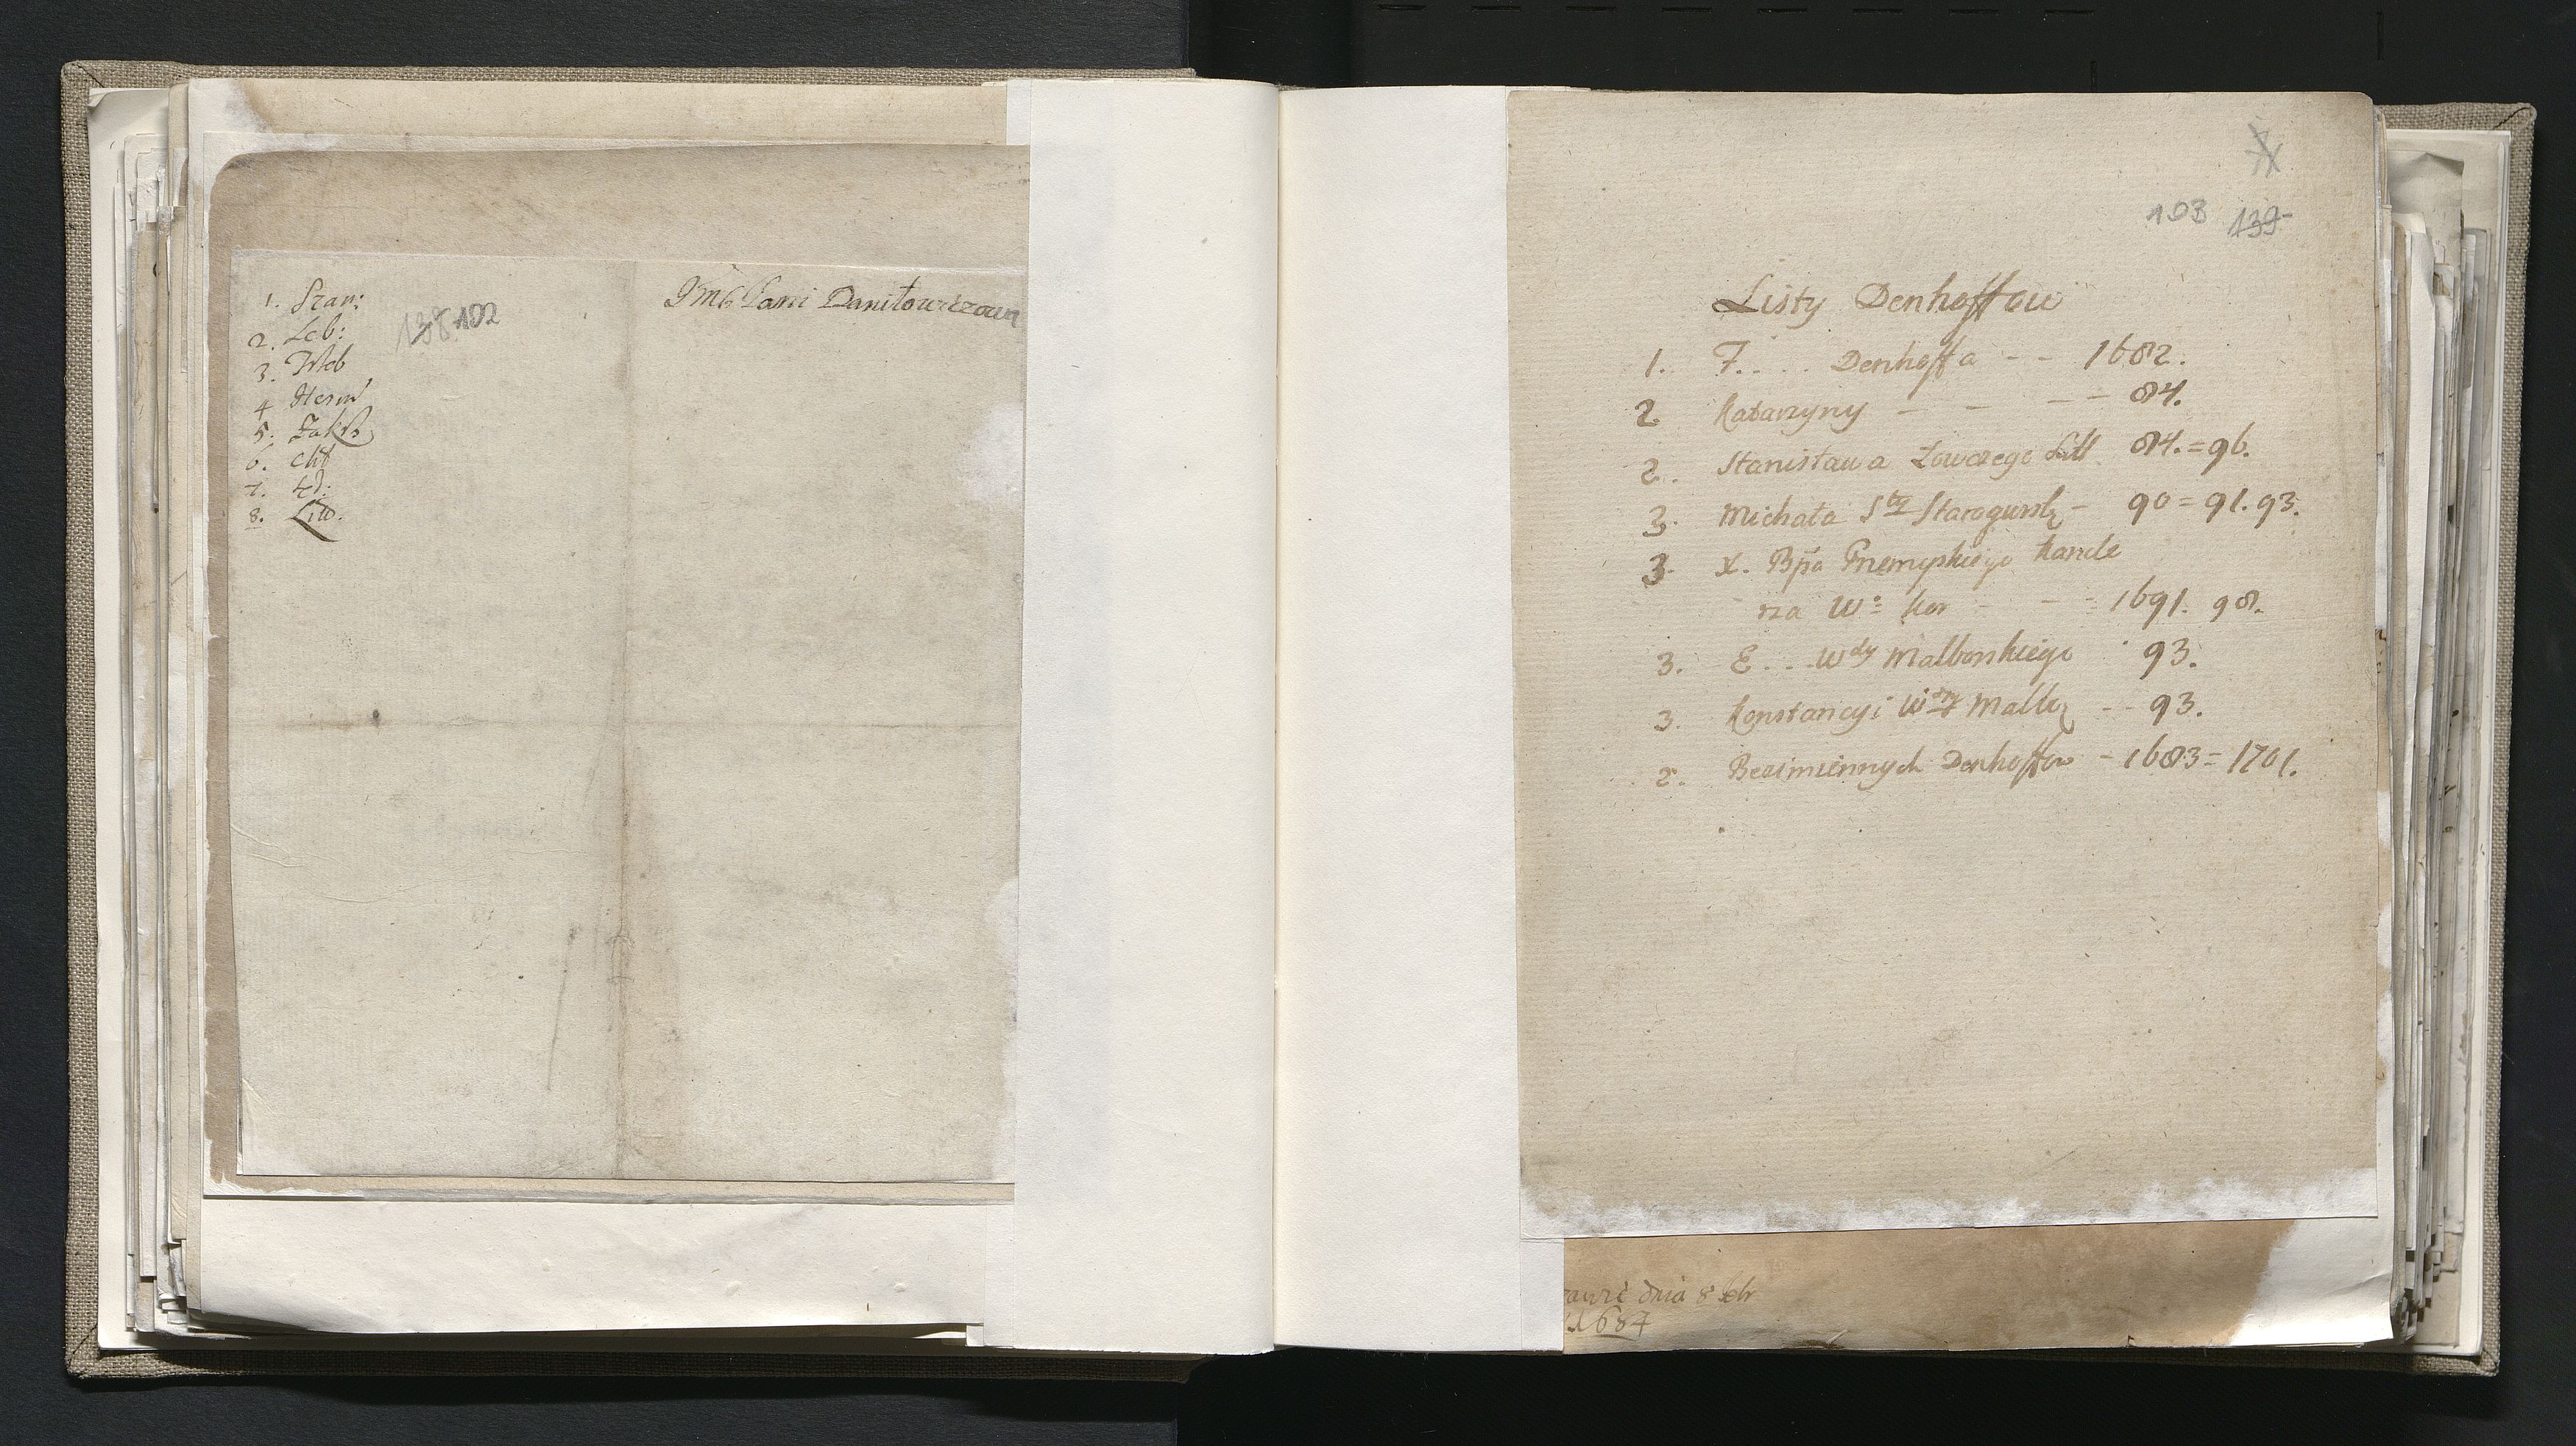 1. Fran:
2. Leb:
3. Wleb
4 Herm
5. Zakr
6. Cht
7.
8. Liw.
138 102
JMb Pani Daniłowiczowa
103 139
Listy Denhoffow
1. F.... Denhoffa - - 1682.
2 Katarzyny - - - - 84.
2. Stanisława Łowczego Litt 84.=96.
3. Michała Sty Starogursk - 90=91.93.
3. X. Bpa Przemyskiego Kancle
rza Wo: Kor - - - 1691. 98.
3. E... Wdy Malborskiego 93.
3. Konstancyi Malb - - 93.
2. Bezimiennych Denhoffow - 1683=1701.
dnia 8
1684